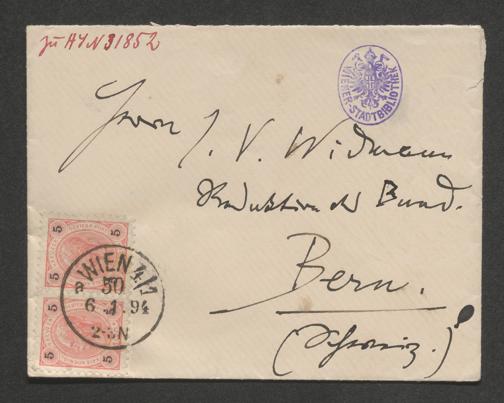 zu H.I.N 31852
WIENER-STADTBIBLIOTHEK
Herrn J. V. Widmann
Redaktion des Bund.
Bern.
(Schweiz.)
5 5
WIEN 4/1
a 50
6.1.94
2-3N
5 5